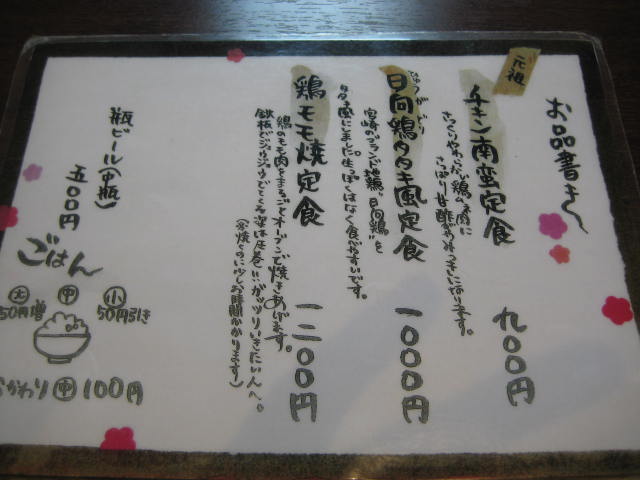 お品書き〜
元祖
チキン南蛮定食 九〇〇円
さっくりやわらかい鶏ムネ肉に
さっぱり甘酢がみつきになります。
日向鶏タタキ風定食 一〇〇〇円
宮崎のブランド地鶏、"日向鶏"を
タタキ風にしました。生っぽくはなく食べやすいです。
鶏モモ焼定食 一二〇〇円
鶏のモモ肉をまるごとオーブンで焼きあげます。
鉄板でジュウジュウでてくる姿は圧巻!!ガッツリいきたい人へ。
(※焼くのに少しお時間かかります)
瓶ビール(中瓶)
五〇〇円
ごはん
大 中 小
50円増 50円引き
おかわり 中 100円